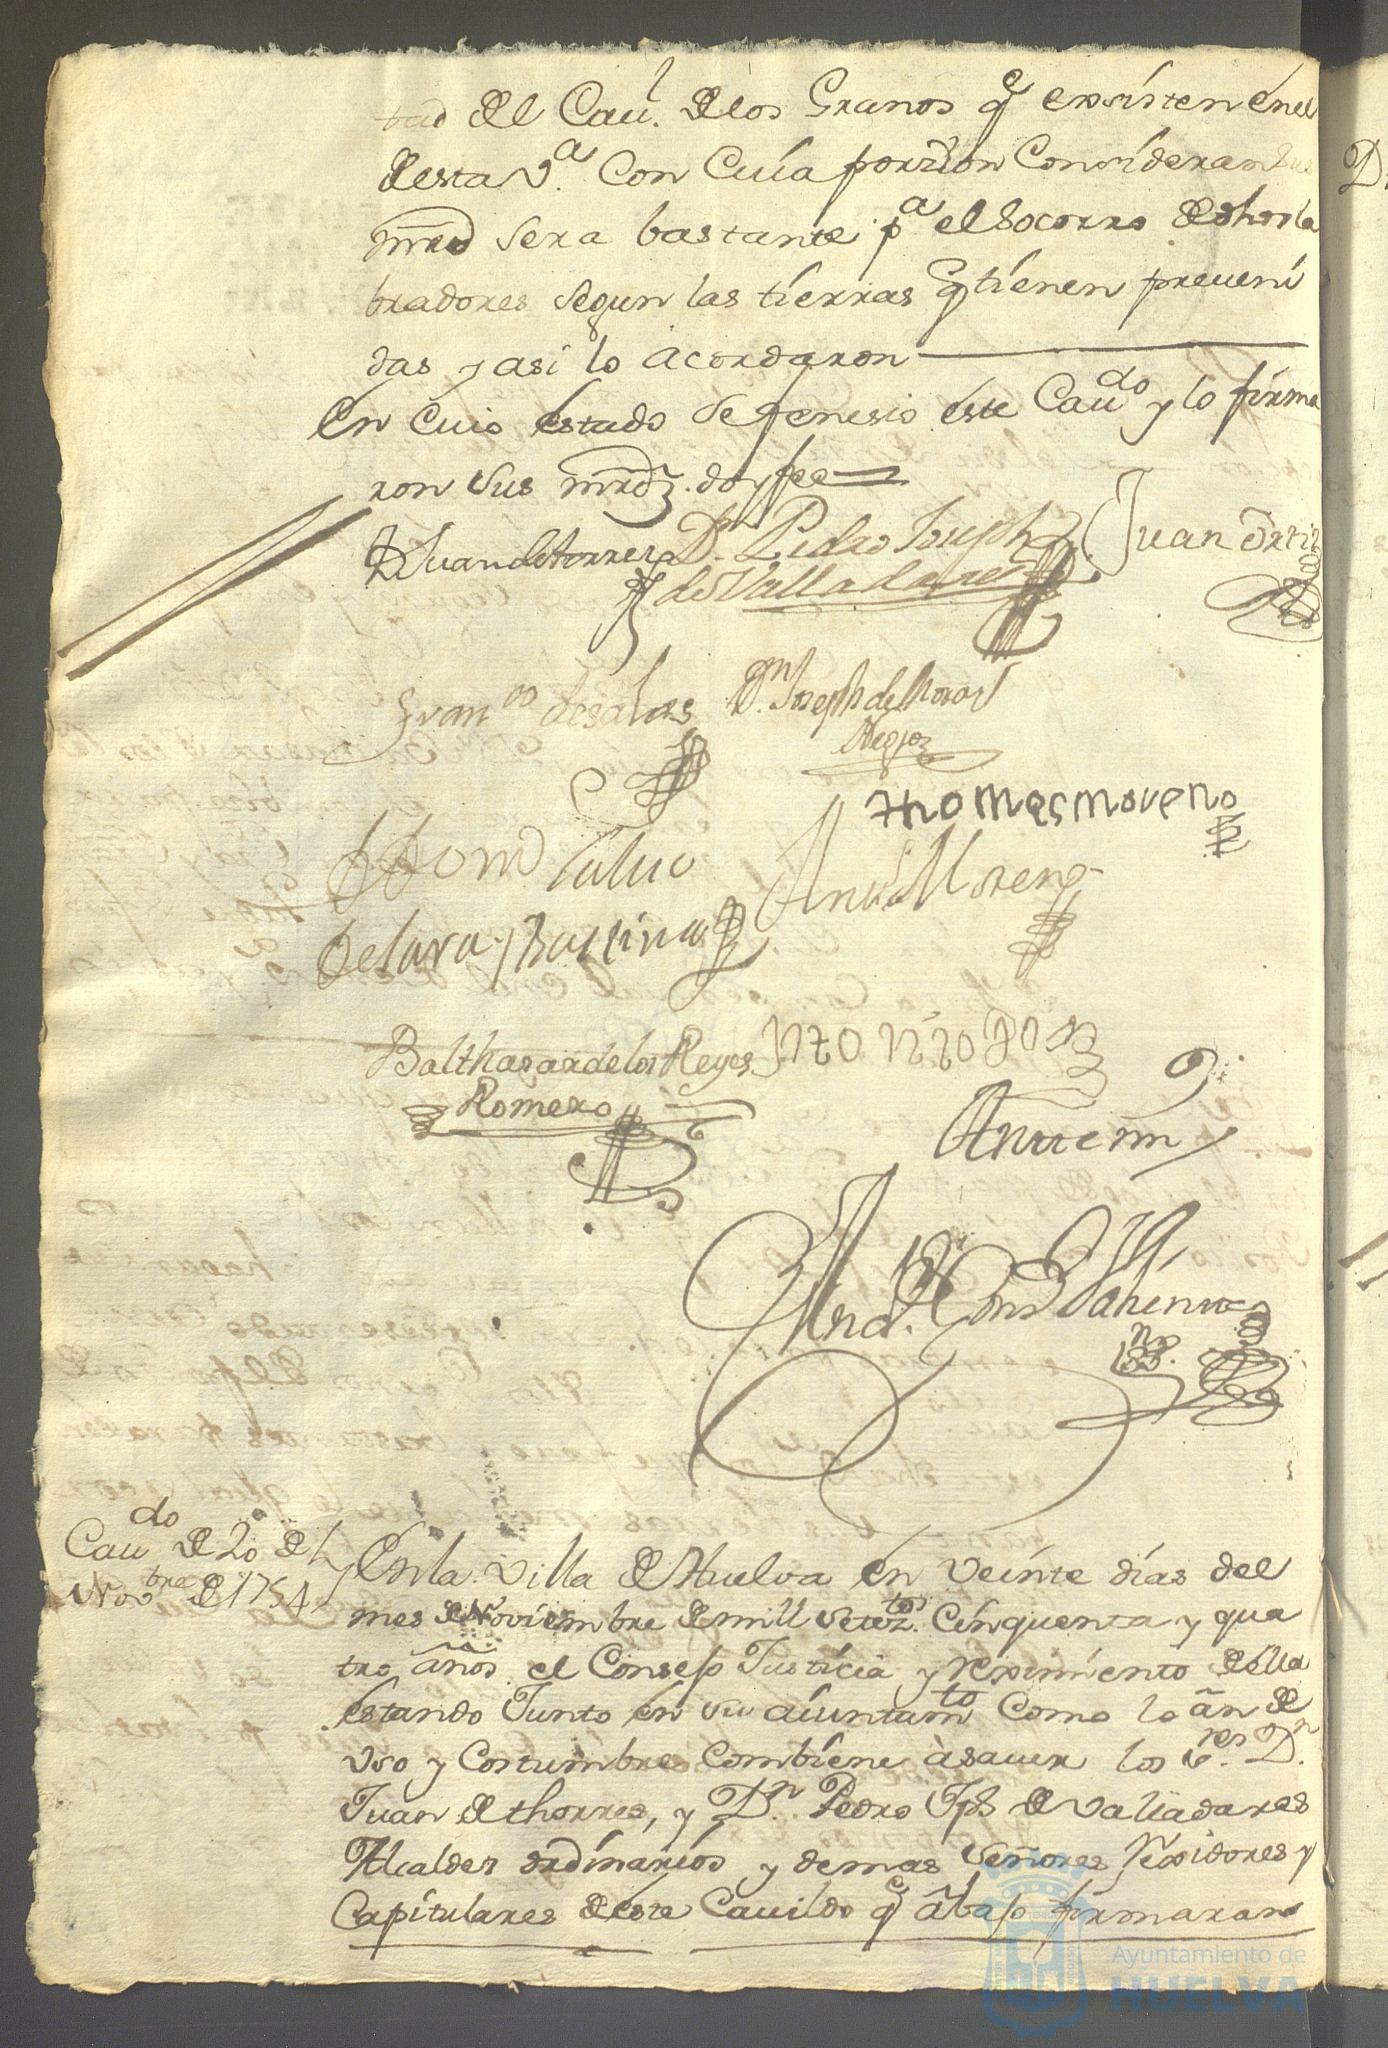 tad del Cau.l de los Granos q.e existen en el
desta V.a Con Cuia porzion Consideran sus
mrcd sera bastante p.a el Socorro de dhos la
bradores segun las tierras q tienen preueni
das y asi lo acordaron
En cuio estado se fenesio este Cau.do y lo firma
ron sus mrdz. doy fee
D Juan de torres D.n Pedro Joseph Juan Ortiz
de Valladares
Fran.co de salas D.n Joseph de
thomas moreno
Anttt Moreno
de lara y
Balthasar de los Reyes
Romero
Antte my
Cau.do de 20 de
Nov.bre de 1754
En la Villa de Huelva en Veinte dias del
mes de Noviembre de mill setez.tos Cinquenta y qua
tro años el Consejo Justicia y reximiento della
estando Junto en su aiuntam.to Como lo àn de
uso y Costumbre Combiene àsauer los s.res D.n
Juan de thorres, y D.n Pedro Jph de Valladares
Alcaldes ordinarios y demas señores rexidores y
Capitulares deste Cauildo q.e àbajo firmaran
Ayuntamiento de
HUELVA